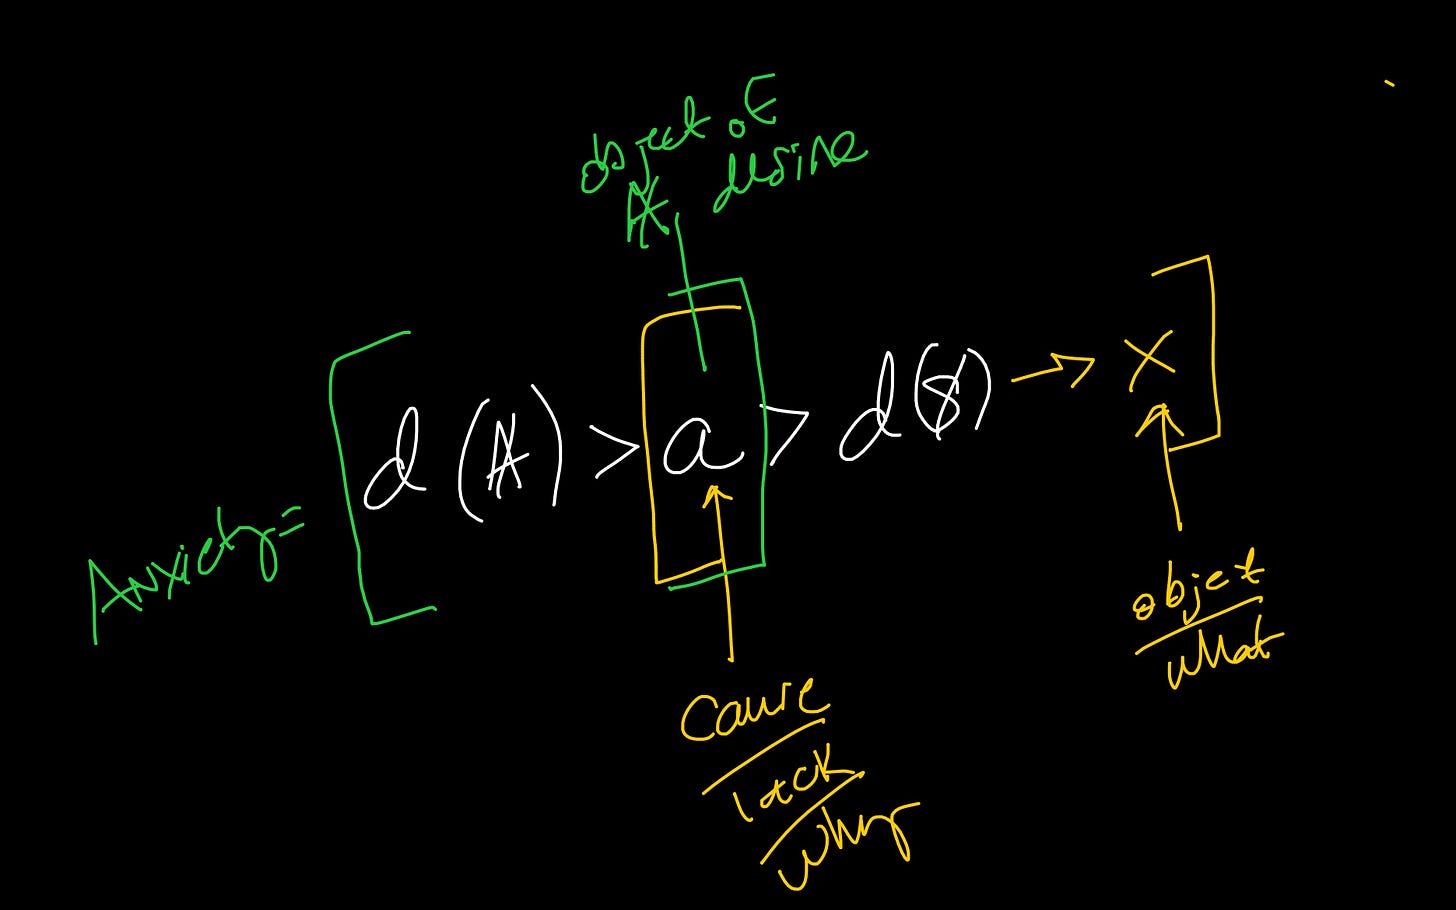 object of
Ⱥ, desire
Anxiety = [ d(Ⱥ) > [a] > d($) → x ]
Cause
lack
why
object
what